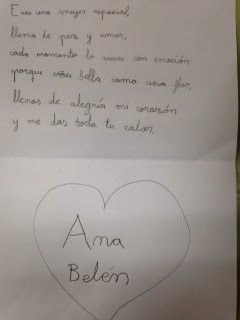 Eres una mujer especial,
llena de paz y amor,
cada momento lo vives con emoción
porque eres bella como una flor,
llenas de alegría mi corazón
y me das todo tu calor.
Ana
Belén